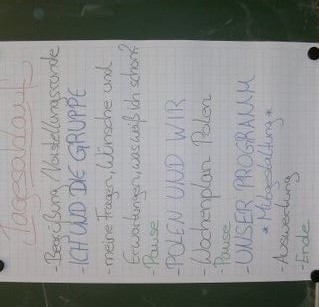 Tagesablauf
- Begrüßung, Vorstellungsrunde
- ICH UND DIE GRUPPE
- meine Fragen, Wünsche und
Erwartungen, was weiß ich schon?
- Pause
- POLEN UND WIR
- Wochenplan Polen
Pause
- UNSER PROGRAMM
* Mitgestaltung *
- Auswertung
- Ende